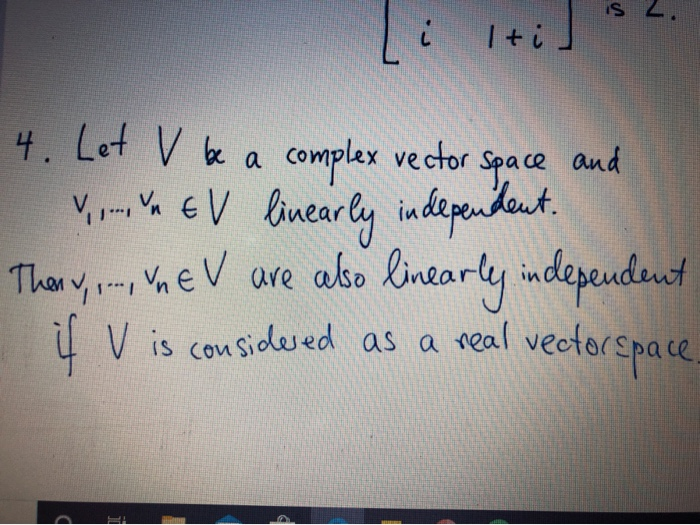 is 2.
[ i 1+i ]
4. Let V be a complex vector space and
v₁,...,vₙ ∈ V linearly independent.
Then v₁,...,vₙ ∈ V are also linearly independent
if V is considered as a real vectorspace.